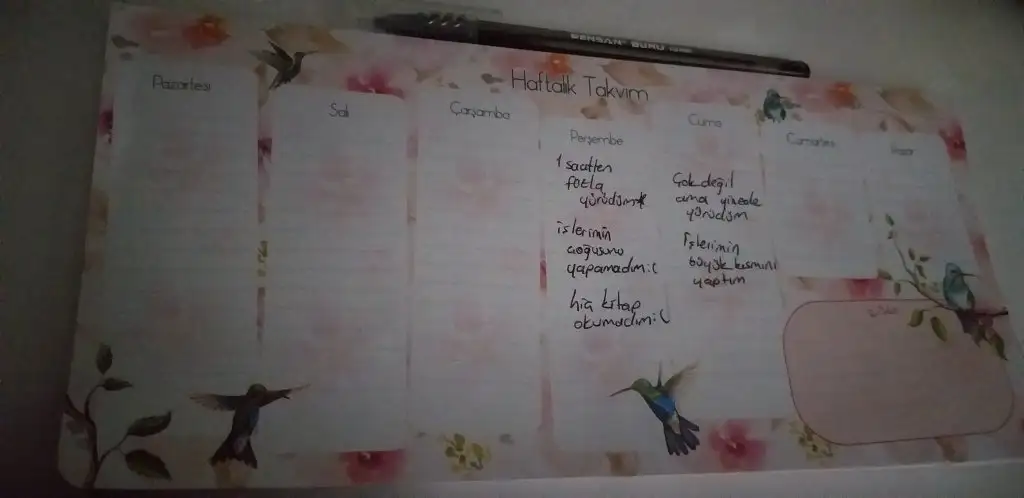 PENSAN BURO
Haftalık Takvim
Pazartesi
Salı
Çarşamba
Perşembe
1 saatten
fazla
yürüdüm
işlerimin
çoğusunu
yapamadım:(
hiç kitap
okumadım:(
Cuma
Çok değil
ama yinede
yürüdüm
İşlerimin
büyük kısmını
yaptım
Cumartesi
Pazar